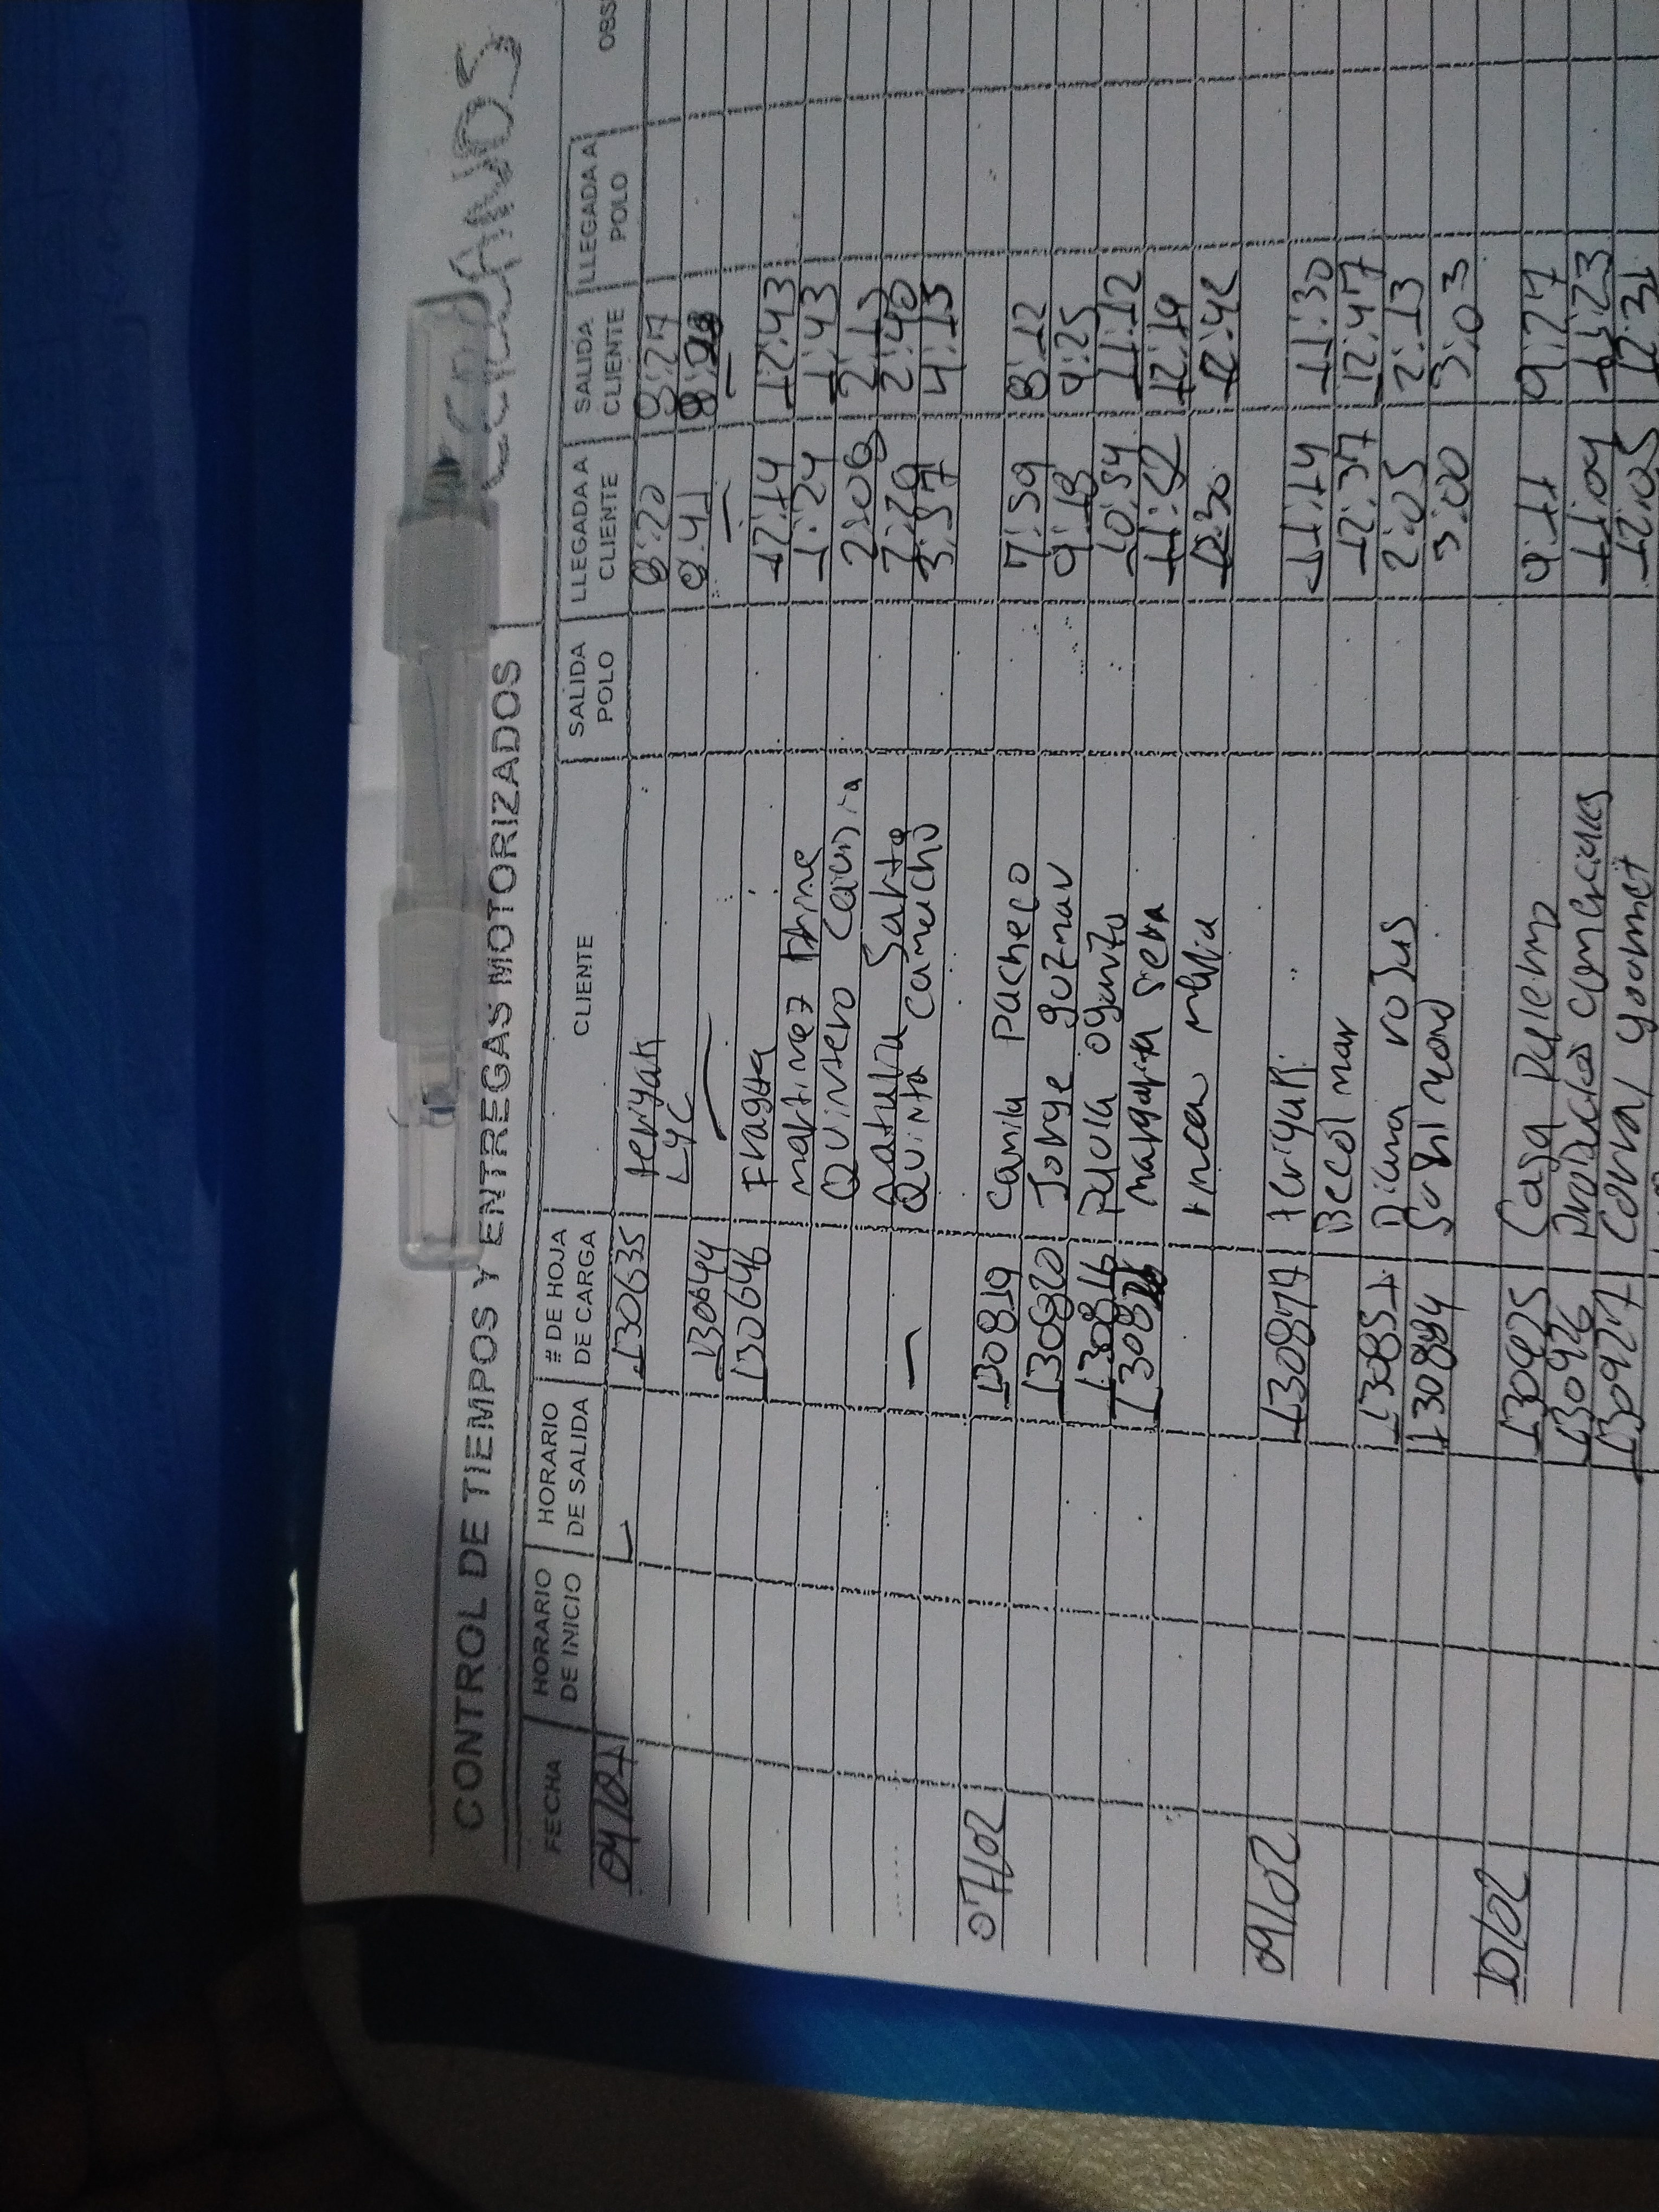 CONTROL DE TIEMPOS Y ENTREGAS MOTORIZADOS
FECHA HORARIO DE INICIO HORARIO DE SALIDA # DE HOJA DE CARGA CLIENTE SALIDA POLO LLEGADA A CLIENTE SALIDA CLIENTE LLEGADA A POLO OBS
130635 teriyaki 8:20 8:27
LYC 8:41
130644
130646 Fragata 12:14 12:43
martinez 1:24 1:43
Quintero 2:06 2:13
2:29 2:40
Quinta camacho 3:57 4:13
07/02 130819 Camila Pacheco 7:59 8:12
130820 Jorge guzman 9:18 9:25
130816 Paula 10:54 11:12
1308 margarita 11:52 12:19
12:30 12:42
09/02 130877 teriyaki 11:14 11:30
Becol mar 12:37 12:47
130851 Diana rojas 2:05 2:13
130884 3:00 3:03
10/02 130925 Casa 9:11 9:27
130926 Productos 11:09 11:23
130927 12:05 12:31